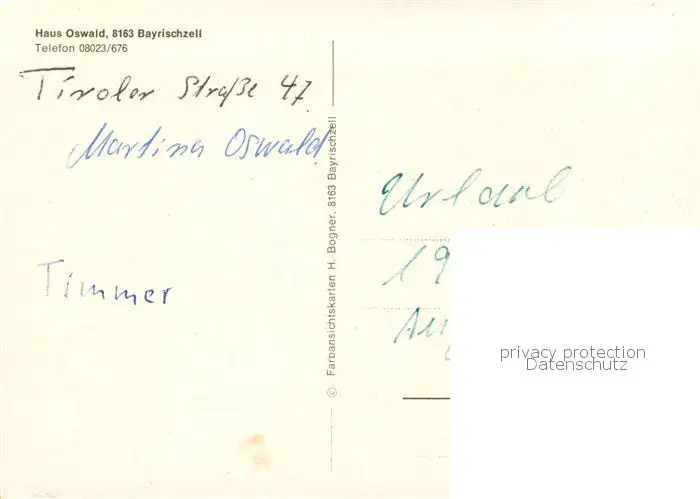 Haus Oswald, 8163 Bayrischzell
Telefon 08023/676
Tiroler Straße 47
Martina Oswald
Timmer
© Farbansichtskarten H. Bogner, 8163 Bayrischzell
Urlaub
19
Aug
privacy protection
Datenschutz